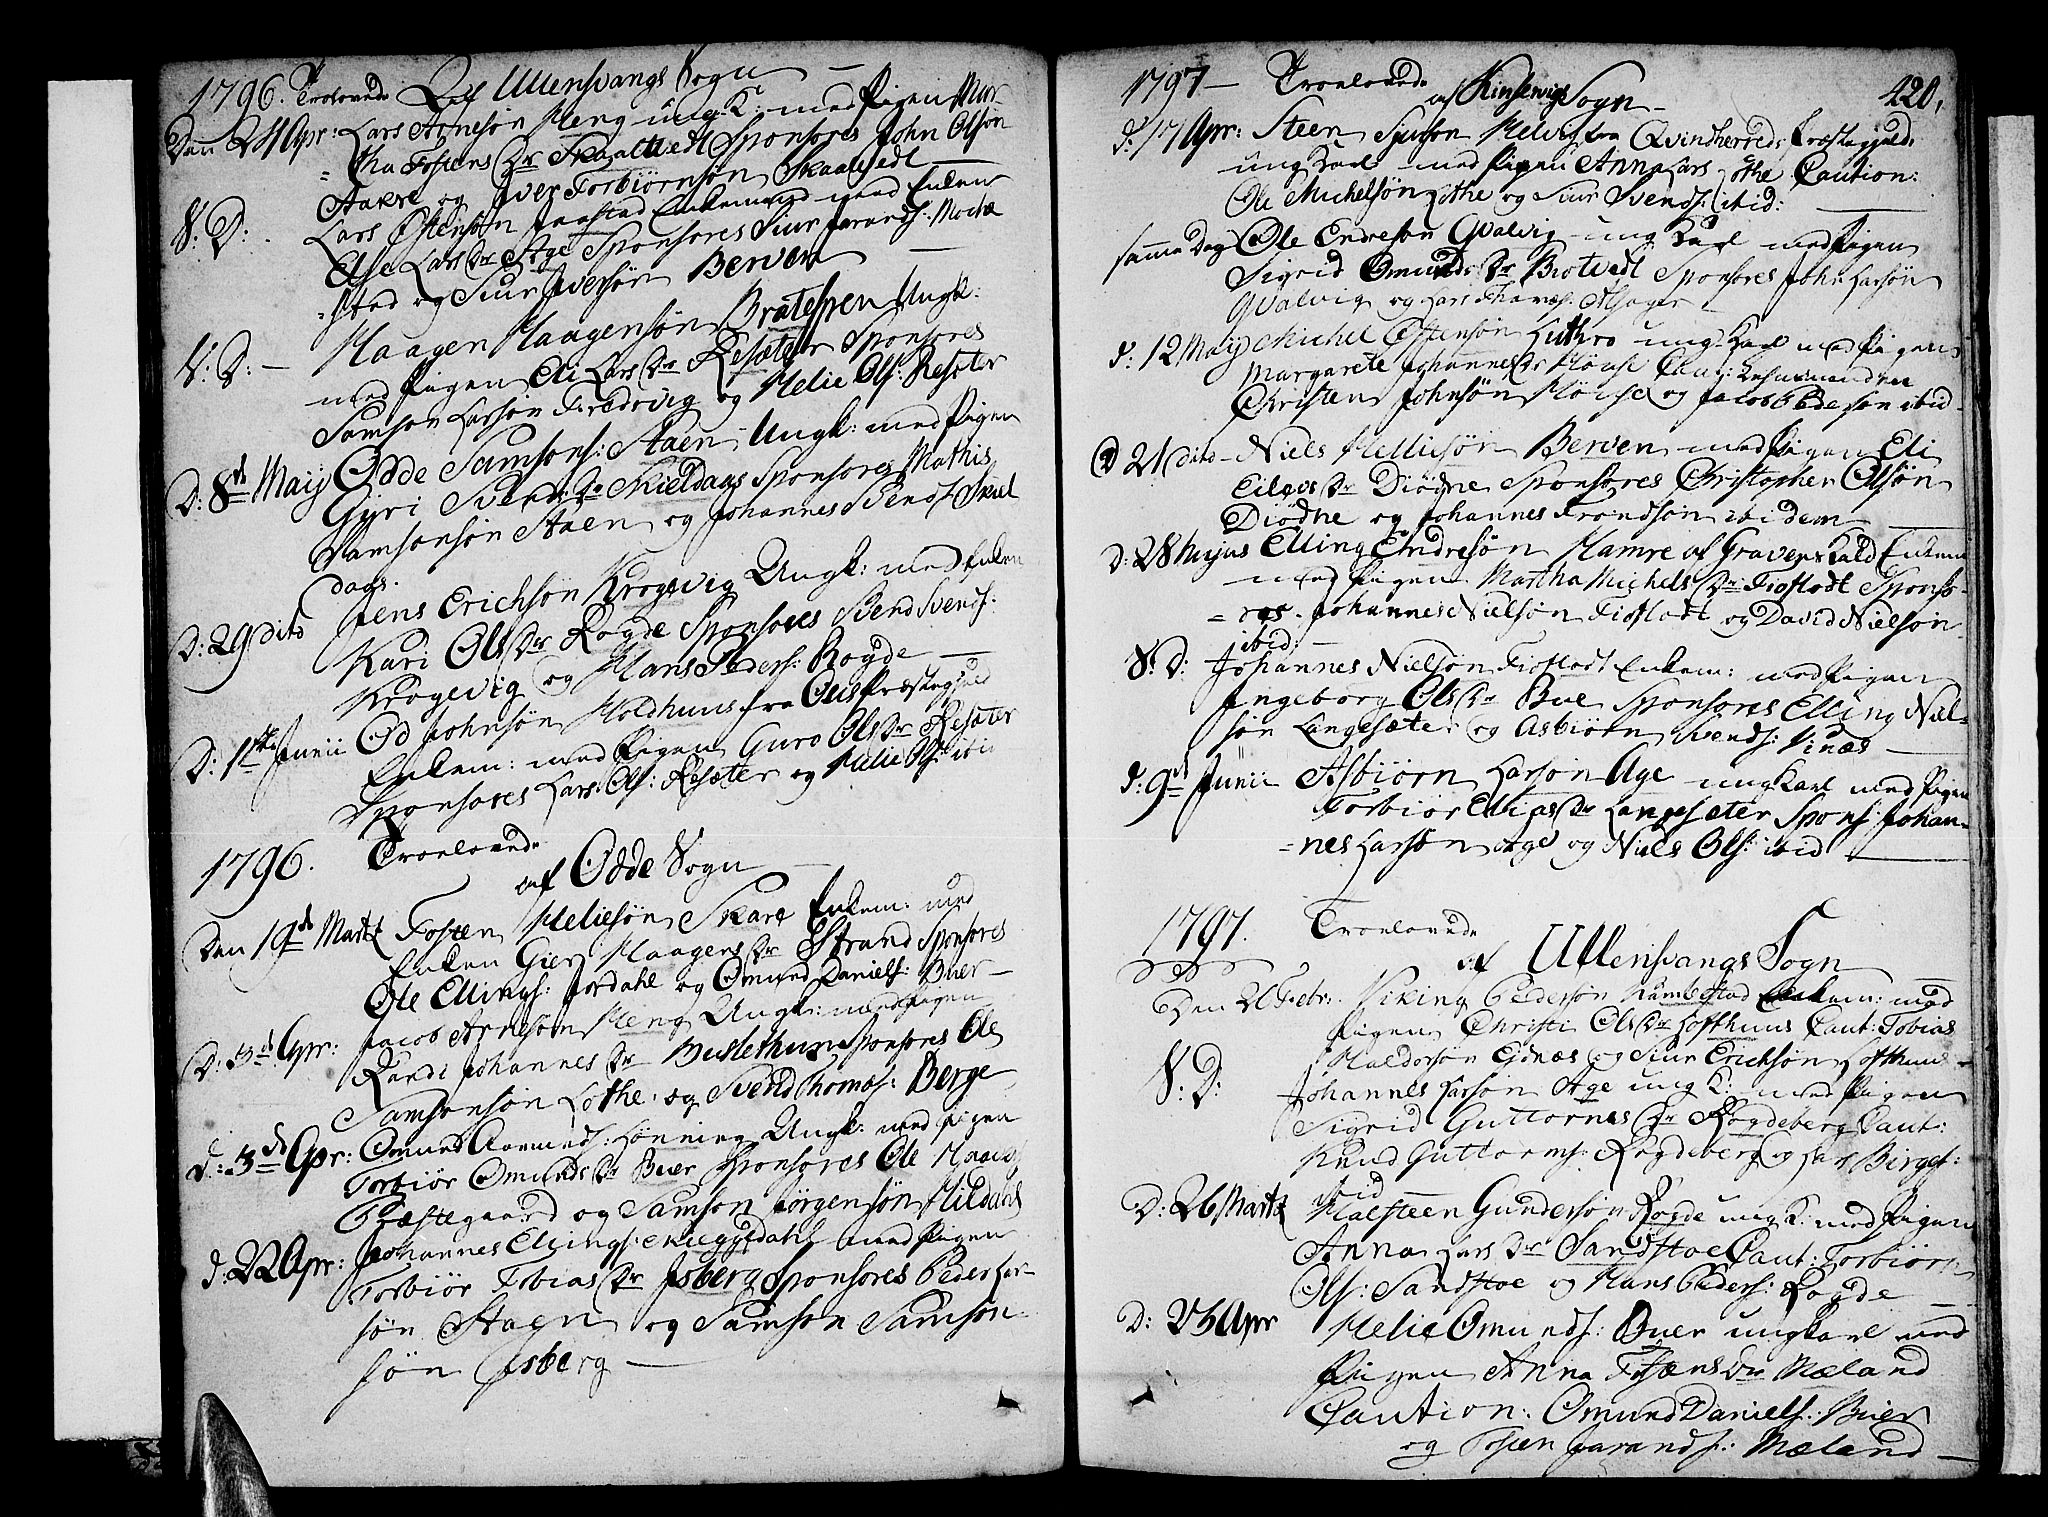 1796. Troelovede af Ullensvangs Sogn
Den 24 Apr: Lars Arnesøn Meng ung K: med Pigen Mar-
=tha Tostens Dr Skaaltvedt Sponsores John Olsøn
Aakre og Iver Torbiørnsøn Skaaltvedt
S: D: Lars Ostensøn Jaastad Enkemand med Enken
Else Lars Dr Age Sponsores Siur Jarands: Mockæ
=stad og Siur Iversøn Berven
S: D: – Haagen Haagensøn Bratespen Ungk:
med Pigen Eli Lars Dr Resæter Sponsores
Samson Larsøn Fredsvig og Helie Ols: Resæter
D: 8de Maij Odde Samsons: Staen Ungk: med Pigen
Gyri Svends Dr Skieldaas Sponsores Mathis
Samsonsøn Staen og Johannes Svends: Skiel
daas.
D: 29 dito Jens Erichsøn Krogevig Ungk: med Enken
Kari Ols Dr Rogde Sponsores Svend Svends:
Krogevig og Hans Peders: Rogde
D: 1ste Junii Od Johnsøn Holdhuus fra Præstegjeld
Enkem: med Pigen Guro Ols Dr Resæter
Sponsores Lars Ols: Resæter og Helie Ols: ibid
1796. Troelovede
af Odde Sogn
Den 19de Marti Tosten Heliesøn Skare Enkem: med
Enken Gier Haagens Dr Strand Sponsores
Ole Ellings: Jordahl og Omund Daniels: Buer
D: 3de Apr: Jacob Arnesøn Meng Ungk: med Pigen
Randi Johannes Dr Bustethun Sponsores Ole
Samsonsøn Lothe, og Svend Thomas: Berge
d: 3de Apr: Omund Aamunds: Lønning Ungk: med Pigen
Torbiør Omunds Dr Buer Sponsores Ole
Præstegaard og Samson Jørgensøn Hildahl
d: 22 Apr: Johannes Ellings: med Pigen
Torbiør Tobias Dr Jsberg Sponsores Peder Lar-
søn Staen og Samson Samson
søn Jsberg
1797 – Troelovede af Kinservigs Sogn – 420.
d: 17 Apr: Steen Simson Helvig fra Qvindherreds Præstegjeld:
ung Karl med Pigen Anna Lars Dr Lothe Caution:
Ole Michelsøn Lothe og Siur Svends: ibid:
samme Dag Ole Endresøn Qvalvig ung Karl med Pigen
Sigrid Omunds Dr Brotvedt Sponsores John Larsøn
Qvalvig og Lars Alsager
d: 12 Maij Michel Ostensøn Luthro ung Karl med Pigen
Margarete Johannes Dr House Caut:
Christen Johnsøn House og Jacob Pedersøn ibid
D 21 dito – Niels Hellisøn Berven med Pigen Eli
Eilevs Dr Diødne Sponsores Christopher Olsøn
Diødne og Johannes Trondsøn ibidem
D: 28 Majus Elling Endresøn Hamre af Gravens Kald Enkem
med Pigen Martha Michels Dr Tioflodt Sponso-
=res. Johannes Nielsøn Tioflodt og David Nielsøn
ibid:
S: D: Johannes Nielsøn Tioflodt Enkem: med Pigen
Ingeborg Ols Dr Bue Sponsores Elling Niel-
søn Langesæter og Asbiørn Svends: Vinæs
d: 9de Junii Asbiørn Larsøn Age ung Karl med Pigen
Torbiør Ellias Dr Langesæter Spons: Johan-
=nes Larsøn Age og Niels Ols: ibid
1797. Troelovede
af Ullensvangs Sogn
Den 26 Febr: Viking Pedersøn Kambestad Enkem: med
Pigen Christi Ols Dr Lofthuus Caut: Tobias
Haldorsøn Eidnæs og Siur Erichsøn Lofthuus
S: D: Johannes Larsøn Age ung K: med Pigen
Sigrid Guttorms Dr Rogdeberg Caut:
Knud Guttorms: Rogdeberg og Lars Birges:
ibid
D: 26 Marti Halsteen Gundersøn Rogde ung K: med Pigen
Anna Lars Dr Sandstoe Caut: Torbiørn
Ols: Sandstoe og Hans Peders: Rogde
D: 23 Apr Helie Omunds: Buer ung Karl med
Pigen Anna Tostens Dr Mæland
Caution: Omund Daniels: Buer
og Tosten Jarands: Mæland